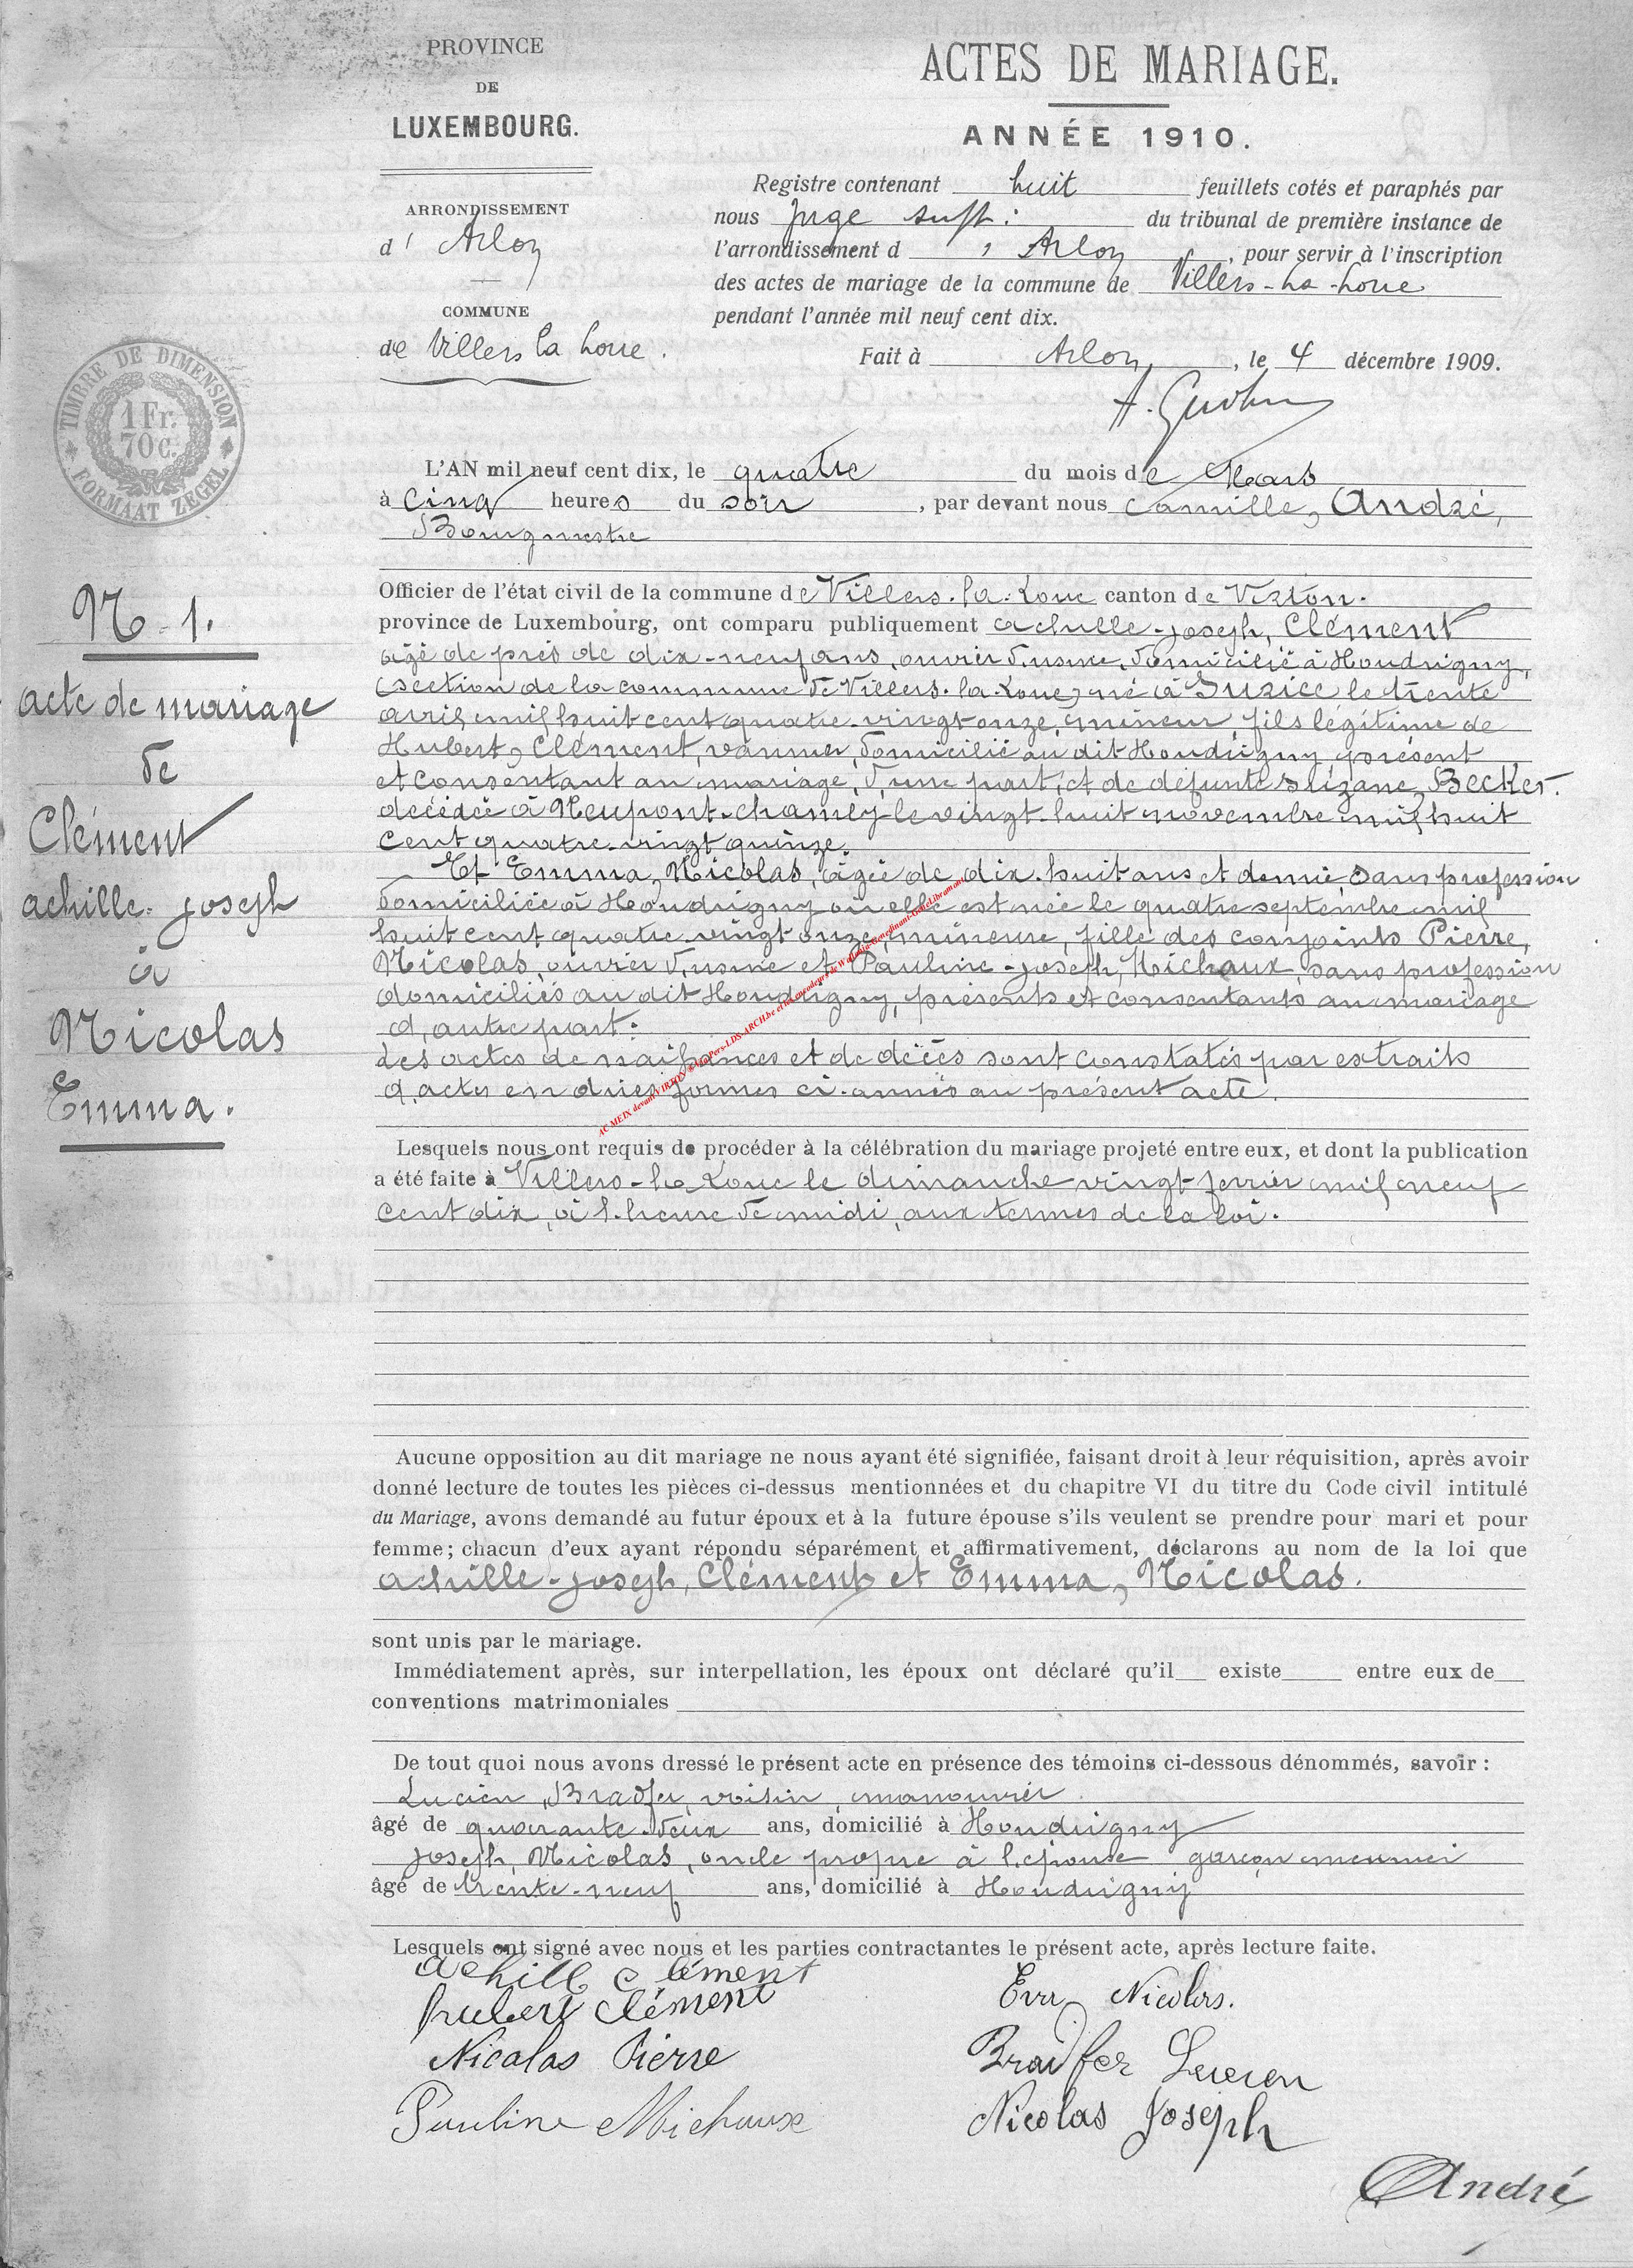 PROVINCE
DE
LUXEMBOURG.
ARRONDISSEMENT
d' Arlon
COMMUNE
de Villers la Loue.
ACTES DE MARIAGE.
ANNÉE 1910.
Registre contenant huit feuillets cotés et paraphés par
nous Juge supt: du tribunal de première instance de
l'arrondissement d' Arlon, pour servir à l'inscription
des actes de mariage de la commune de Villers-la-Loue
pendant l'année mil neuf cent dix.
Fait à Arlon, le 4 décembre 1909.
TIMBRE DE DIMENSION
1 Fr.
70 c.
FORMAAT ZEGEL
L'AN mil neuf cent dix, le quatre du mois de Mars
à cinq heures du soir, par devant nous Camille, André,
Bourgmestre
Officier de l'état civil de la commune de Villers-la-Loue canton de Virton.
province de Luxembourg, ont comparu publiquement achille-joseph, Clément
âgé de près de dix-neuf ans, ouvrier d'usine, domicilié à Houdrigny,
(section de la commune de Villers-la-Loue) né à le trente
avril mil huit cent quatre-vingt onze, mineur, fils légitime de
Hubert, Clément, vannier, domicilié au dit Houdrigny, présent
et consentant au mariage, d'une part, et de défunte Suzane, Becker.
décédée à Neupont-chamly le vingt-huit novembre mil huit
cent quatre-vingt quinze.
Et Emma, Nicolas, âgée de dix-huit ans et demie, sans profession
domiciliée à Houdrigny où elle est née le quatre septembre mil
huit cent quatre-vingt onze, mineure, fille des conjoints Pierre,
Nicolas, ouvrier d'usine et Pauline-joseph, Michaux, sans profession
domiciliés au dit Houdrigny, présents et consentants au mariage
d'autre part.
Les actes de naissances et de décès sont constatés par extraits
d'actes en dues formes ci-annés au présent acte.
Lesquels nous ont requis de procéder à la célébration du mariage projeté entre eux, et dont la publication
a été faite à Villers-la-Loue le dimanche vingt février mil neuf
cent dix, à l'heure de midi, aux termes de la loi.
Aucune opposition au dit mariage ne nous ayant été signifiée, faisant droit à leur réquisition, après avoir
donné lecture de toutes les pièces ci-dessus mentionnées et du chapitre VI du titre du Code civil intitulé
du Mariage, avons demandé au futur époux et à la future épouse s'ils veulent se prendre pour mari et pour
femme; chacun d'eux ayant répondu séparément et affirmativement, déclarons au nom de la loi que
achille-joseph, Clément et Emma, Nicolas.
sont unis par le mariage.
Immédiatement après, sur interpellation, les époux ont déclaré qu'il existe entre eux de
conventions matrimoniales
De tout quoi nous avons dressé le présent acte en présence des témoins ci-dessous dénommés, savoir :
Lucien, Bradfer, voisin, manouvrier
âgé de quarante-deux ans, domicilié à Houdrigny
joseph, Nicolas, oncle propre à l'épouse garçon meunier
âgé de trente-neuf ans, domicilié à Houdrigny
Lesquels ont signé avec nous et les parties contractantes le présent acte, après lecture faite.
achille clément
hubert clément
Nicolas Pierre
Pauline Michaux
Nicolas.
Bradfer Lucien
Nicolas Joseph
André
N. 1.
acte de mariage
de
Clément
achille-joseph
à
Nicolas
Emma.